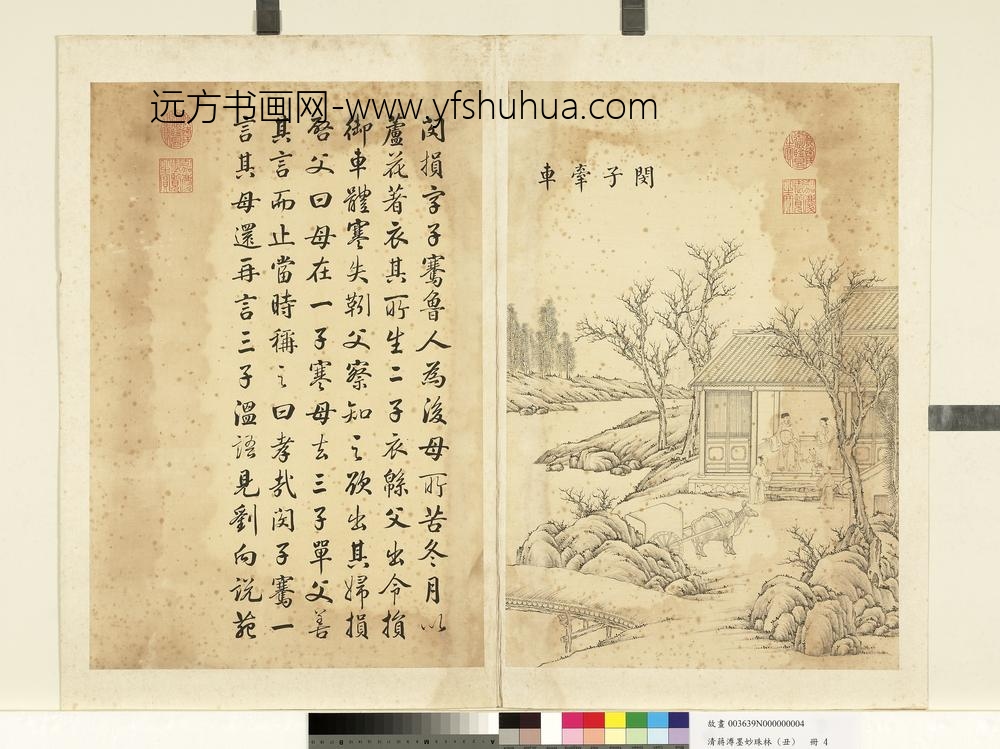 远方书画网-www.yfshuhua.com
閔子牽車
閔損字子騫魯人為後母所苦冬月以
蘆花著衣其所生二子衣緜父出令損
御車體寒失靷父察知之欲出其婦損
啓父曰母在一子寒母去三子單父善
其言而止當時稱之曰孝哉閔子騫一
言其母還再言三子溫語見劉向說苑
故畫 003639N000000004
清蔣溥墨妙珠林（丑） 冊 4